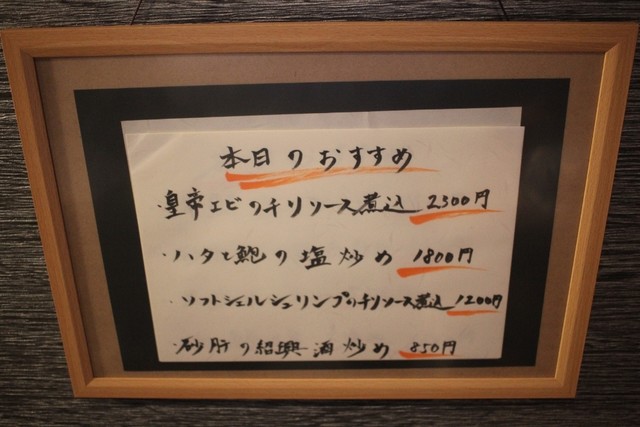 本日のおすすめ
・皇帝エビのチリソース煮込 2300円
・ハタと鮑の塩炒め 1800円
・ソフトシェルシュリンプのチリソース煮込 1200円
・砂肝の紹興酒炒め 850円